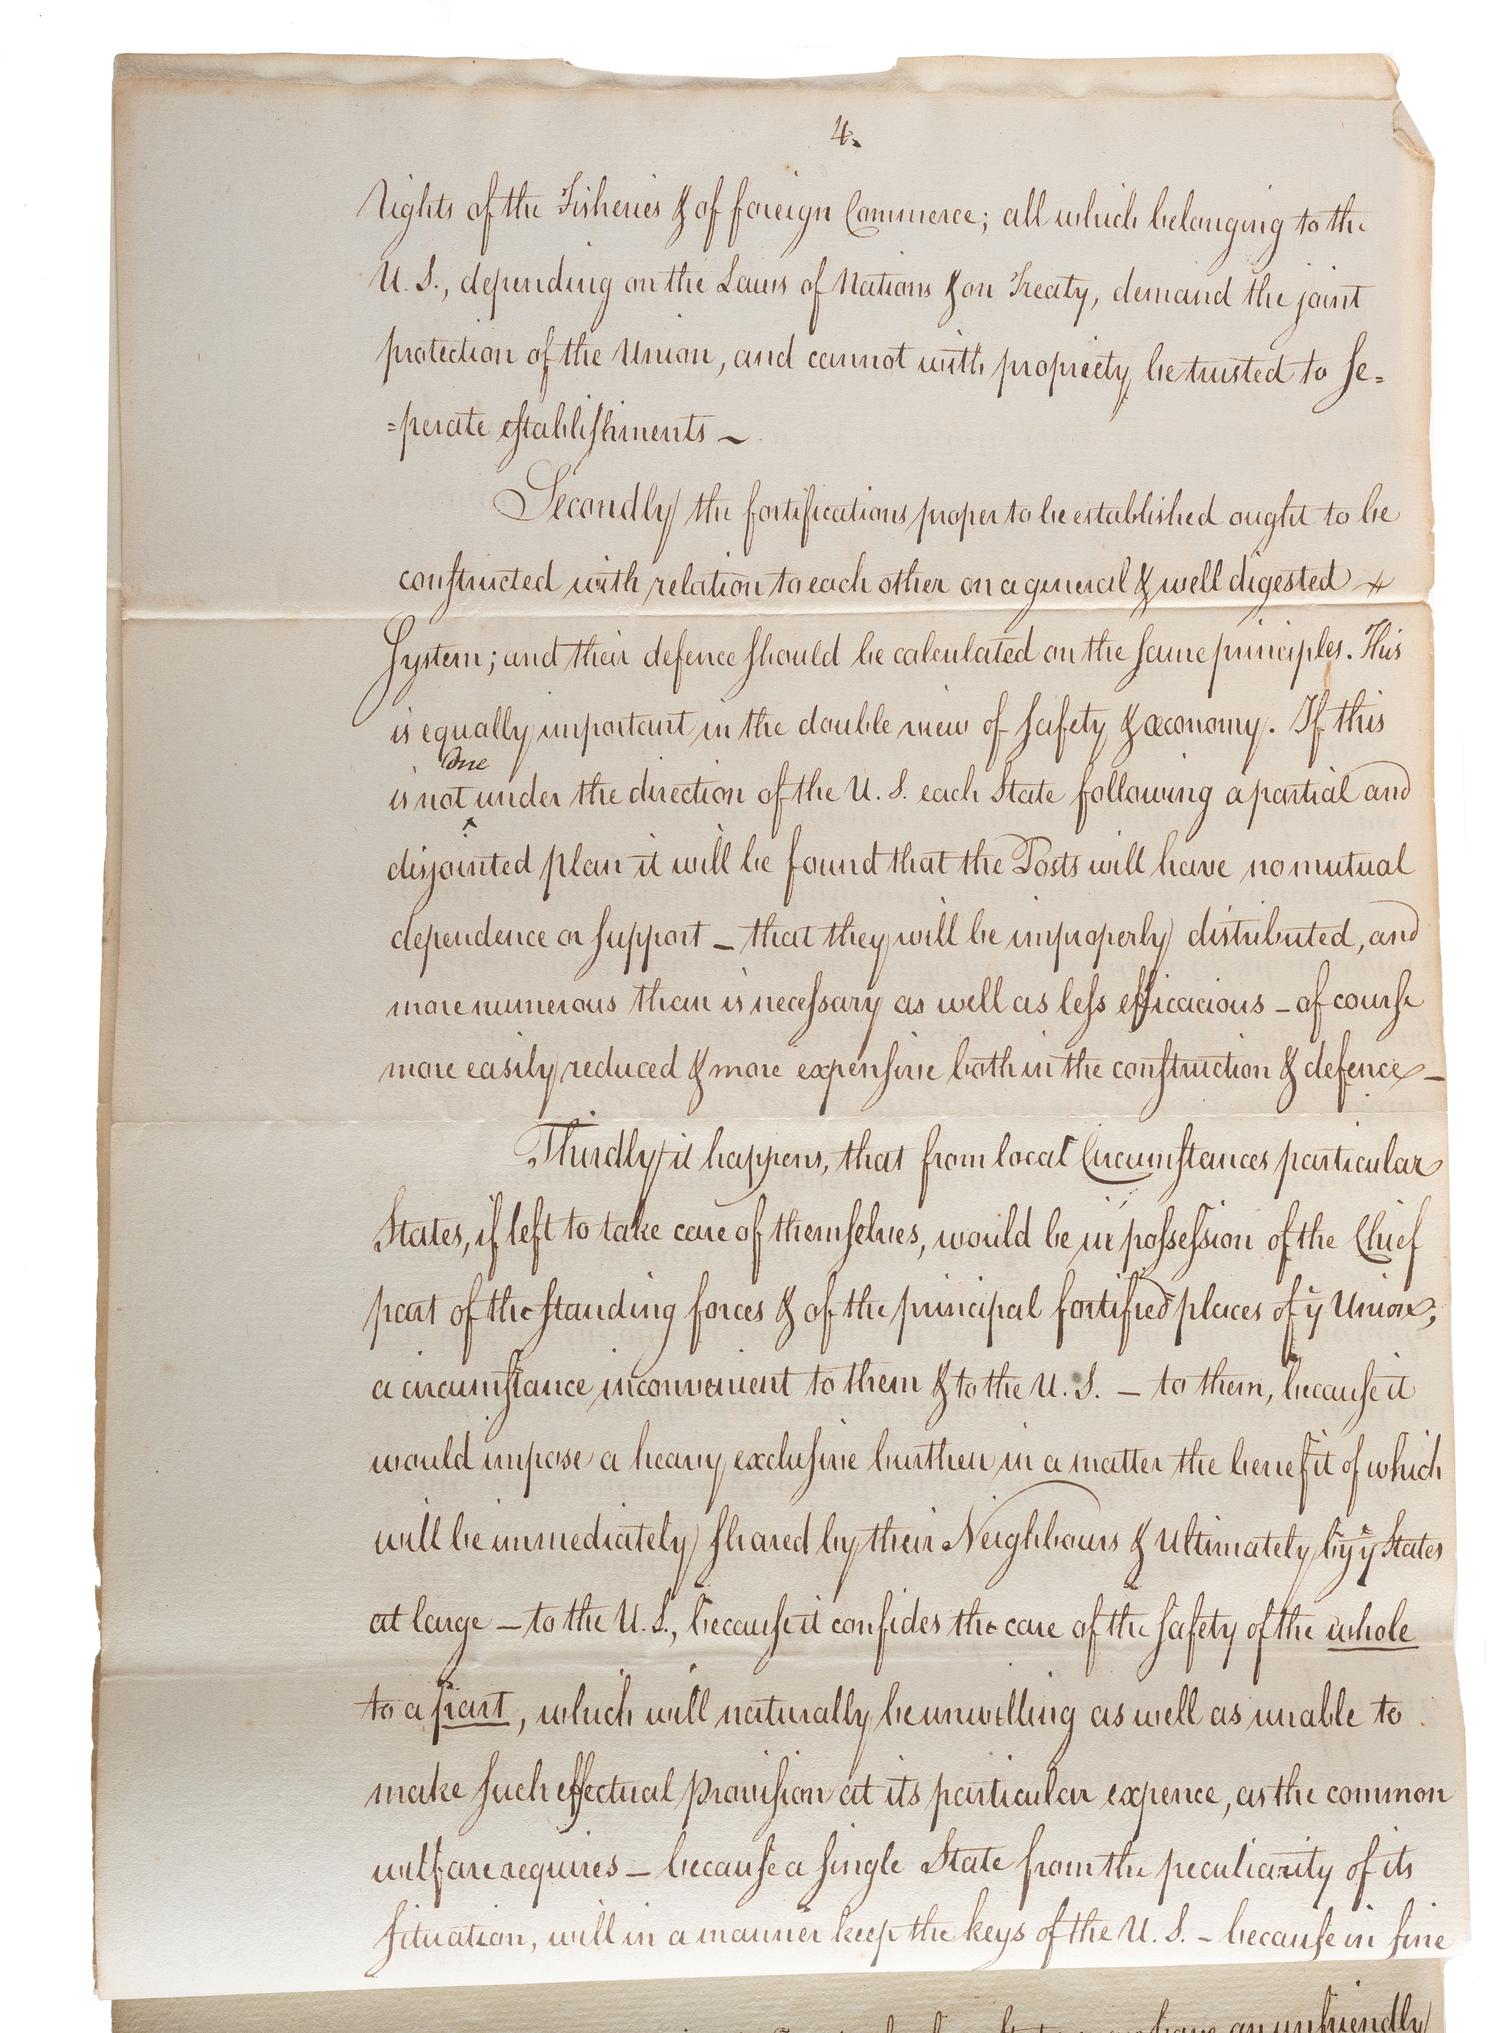 4.
rights of the Fisheries & of foreign Commerce; all which belonging to the
U. S., depending on the Laws of Nations & on Treaty, demand the joint
protection of the Union, and cannot with propriety be trusted to se=
=perate establishments —
Secondly the fortifications proper to be established ought to be
constructed with relation to each other on a general & well digested
System; and their defence should be calculated on the same principles. This
is equally important in the double view of safety & œconomy. If this
done
is not under the direction of the U. S. each State following a partial and
disjointed plan it will be found that the Posts will have no mutual
dependence or support — that they will be improperly distributed, and
more numerous than is necessary as well as less efficacious — of course
more easily reduced & more expensive both in the construction & defence —
Thirdly it happens, that from local Circumstances particular
States, if left to take care of themselves, would be in possession of the Chief
part of the standing forces & of the principal fortified places of ye Union;
a circumstance inconvenient to them & to the U. S. — to them, because it
would impose a heavy exclusive burthen in a matter the benefit of which
will be immediately shared by their Neighbours & ultimately by ye States
at large — to the U. S., because it confides the care of the safety of the whole
to a part, which will naturally be unwilling as well as unable to
make such effectual provision at its particular expence, as the common
welfare requires — because a single State from the peculiarity of its
situation, will in a manner keep the keys of the U. S. — because in fine
an unfriendly